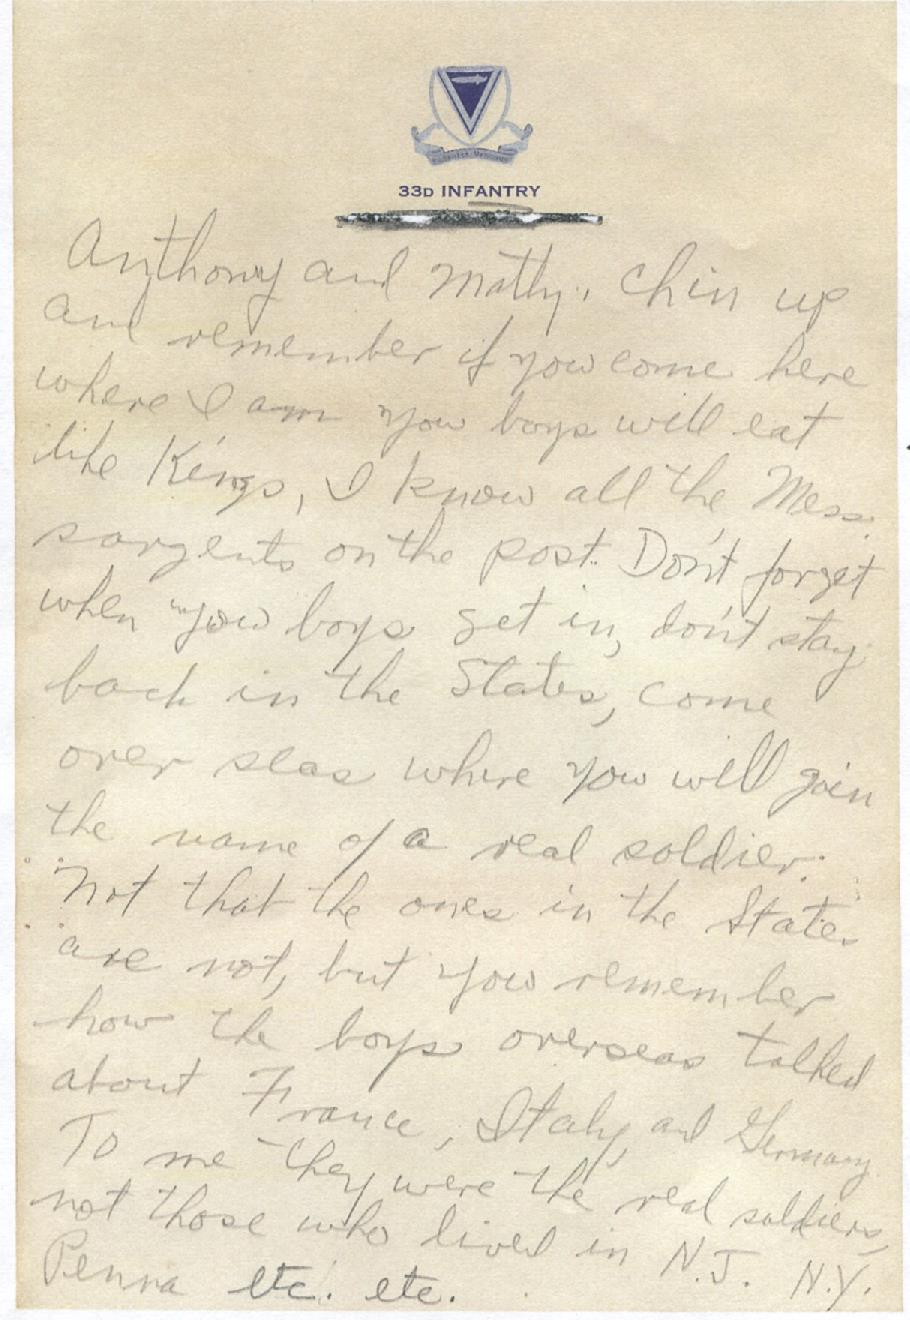 33D INFANTRY
Anthony and Matty, Chin up
and remember if you come here
where I am you boys will eat
like Kings, I know all the Mess
sargents on the post. Don't forget
when you boys get in, don't stay
back in the States, come
over seas where you will gain
the name of a real soldier.
Not that the ones in the States
are not, but you remember
how the boys overseas talked
about France, Italy, and Germany.
To me they were the real soldiers,
not those who lived in N.J. N.Y.
Penna etc. etc.